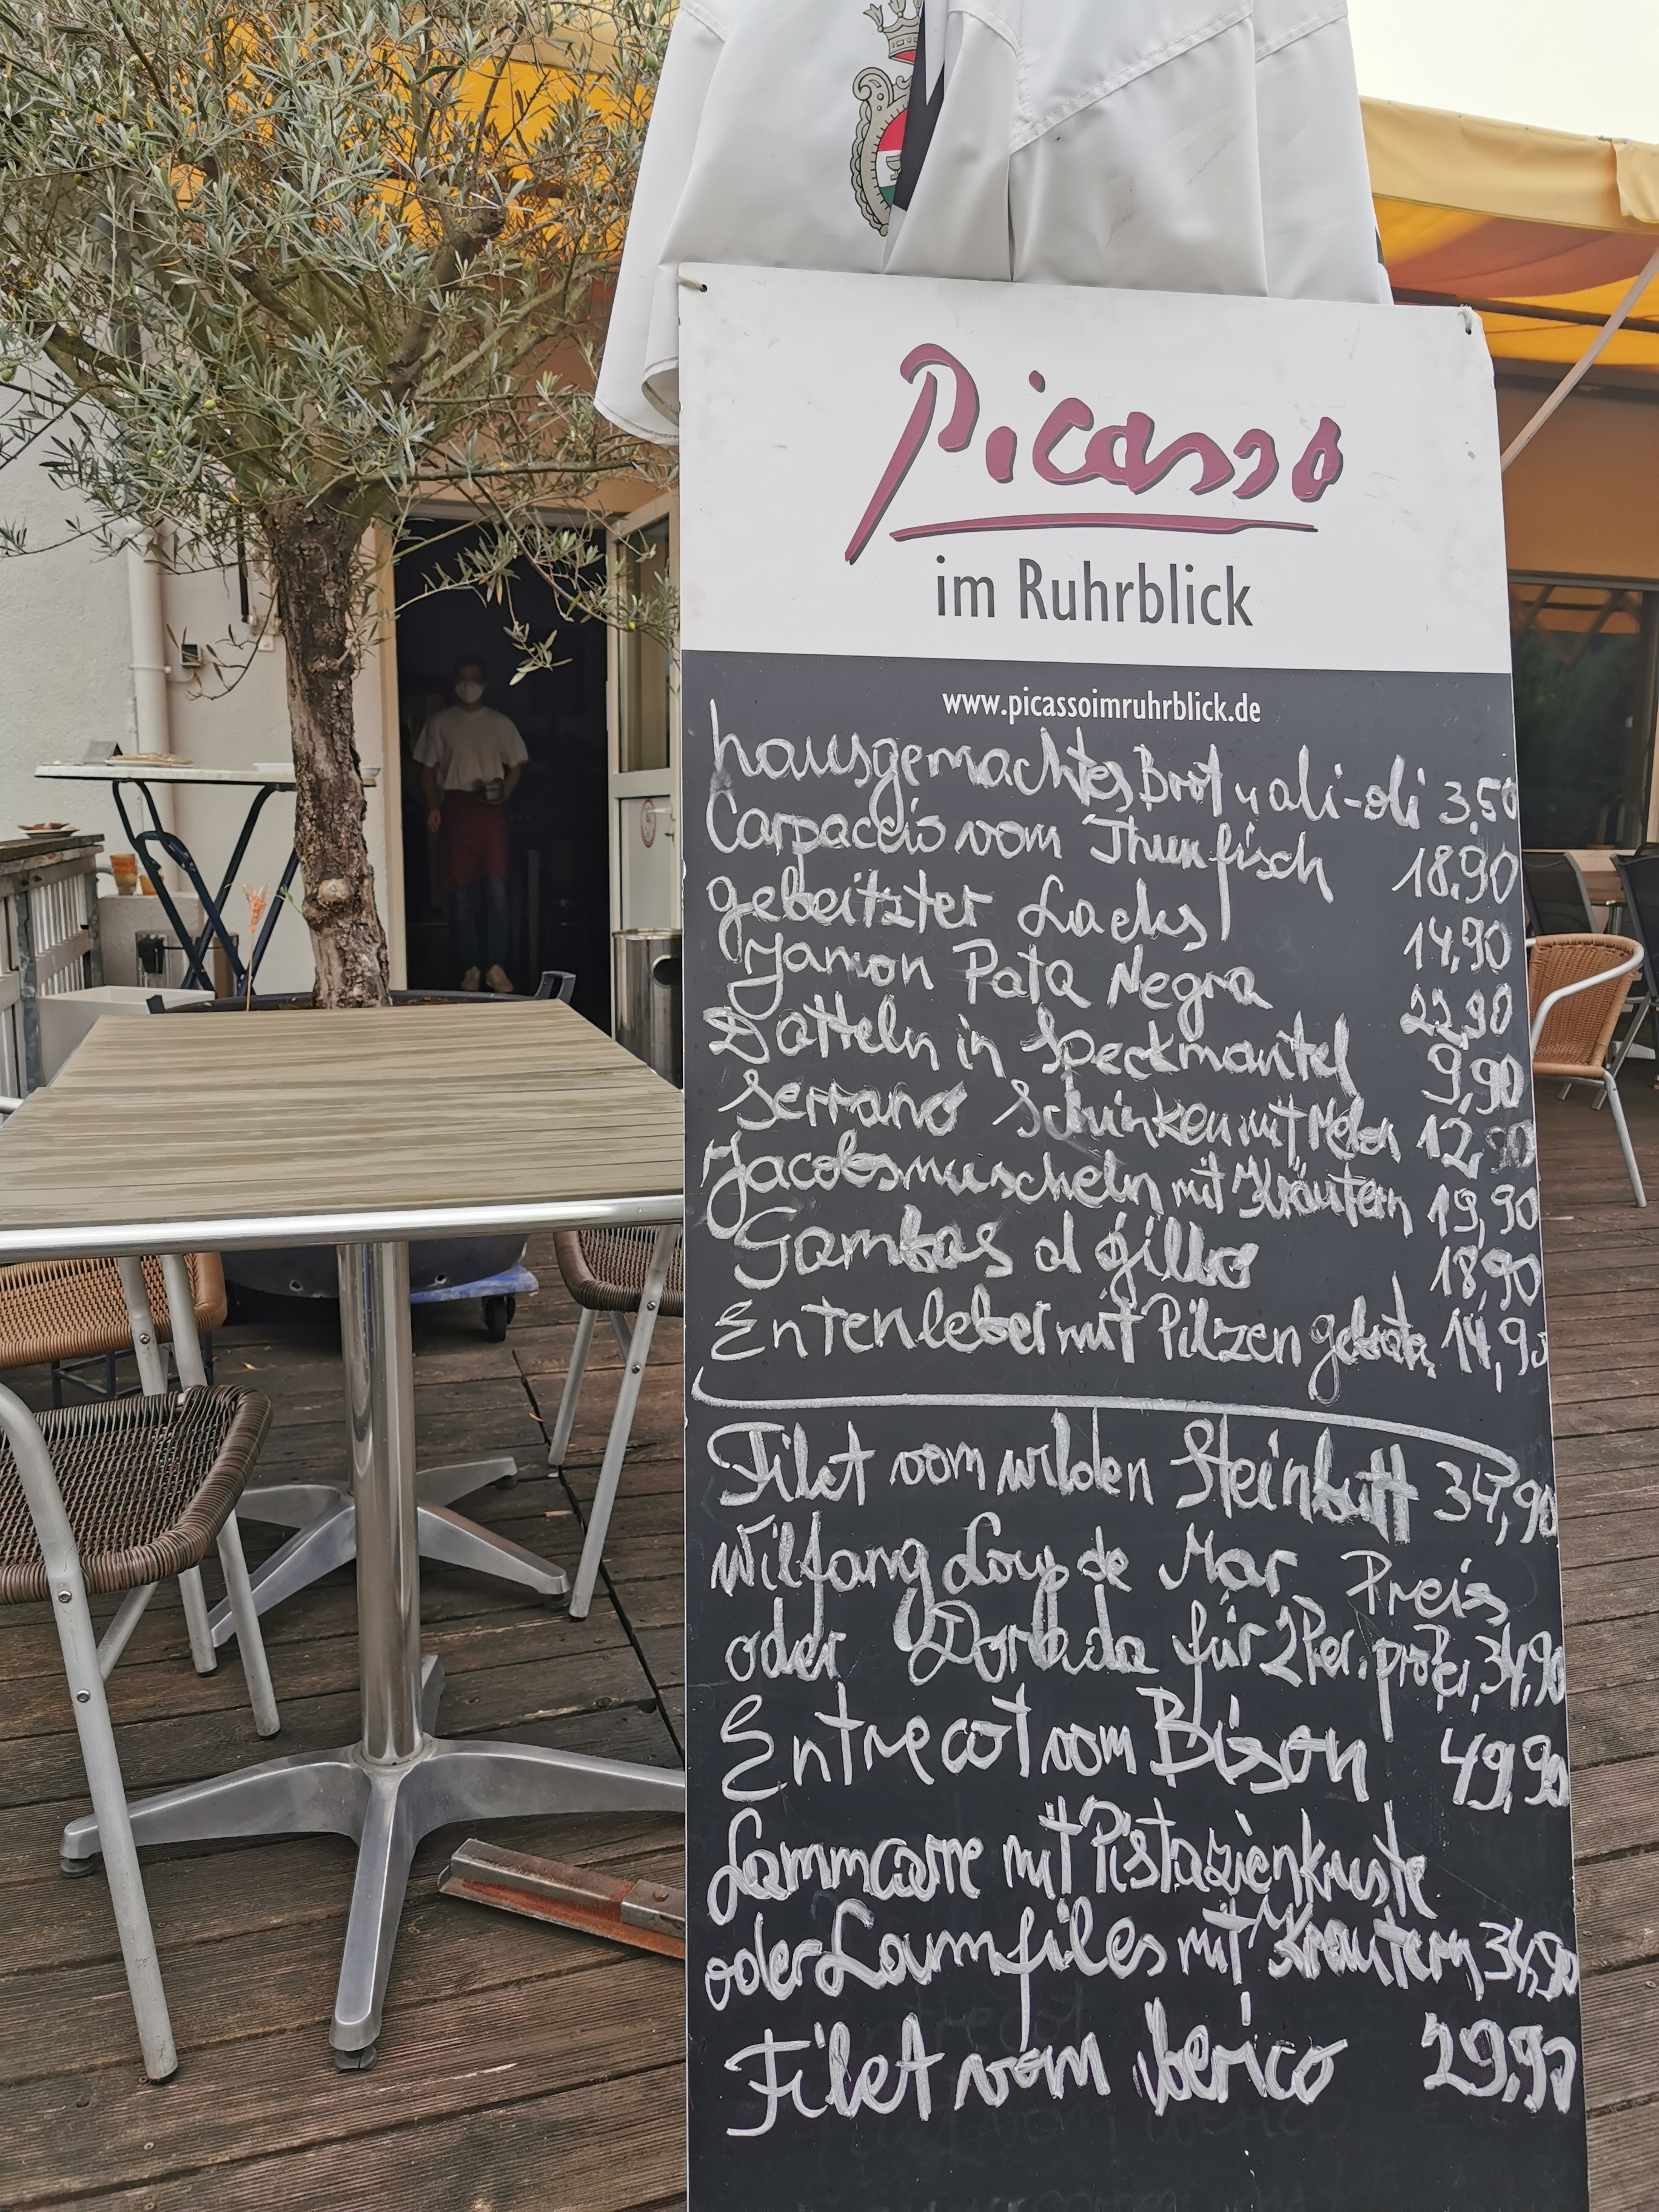 Picasso
im Ruhrblick
www.picassoimruhrblick.de
hausgemachtes Brot u ali-oli 3,50
Carpaccio vom Thunfisch 18,90
gebeitzter Lachs 14,90
Jamon Pata Negra 22,90
Datteln in Speckmantel 9,90
Serrano Schinken mit Melon 12,
Jacobsmuscheln mit Kräutern 19,90
Gambas al gillo 18,90
Entenleber mit Pilzen 14,90
Filet vom wilden Steinbutt 34,90
Wilfang Loup de Mar Preis
oder für 2 Per. pro 34,90
Entrecot vom Bison 49,90
Lammcarre mit Pistazienkruste
oder Lamfiles mit Kräutern 34,90
Filet vom Iberico 29,90